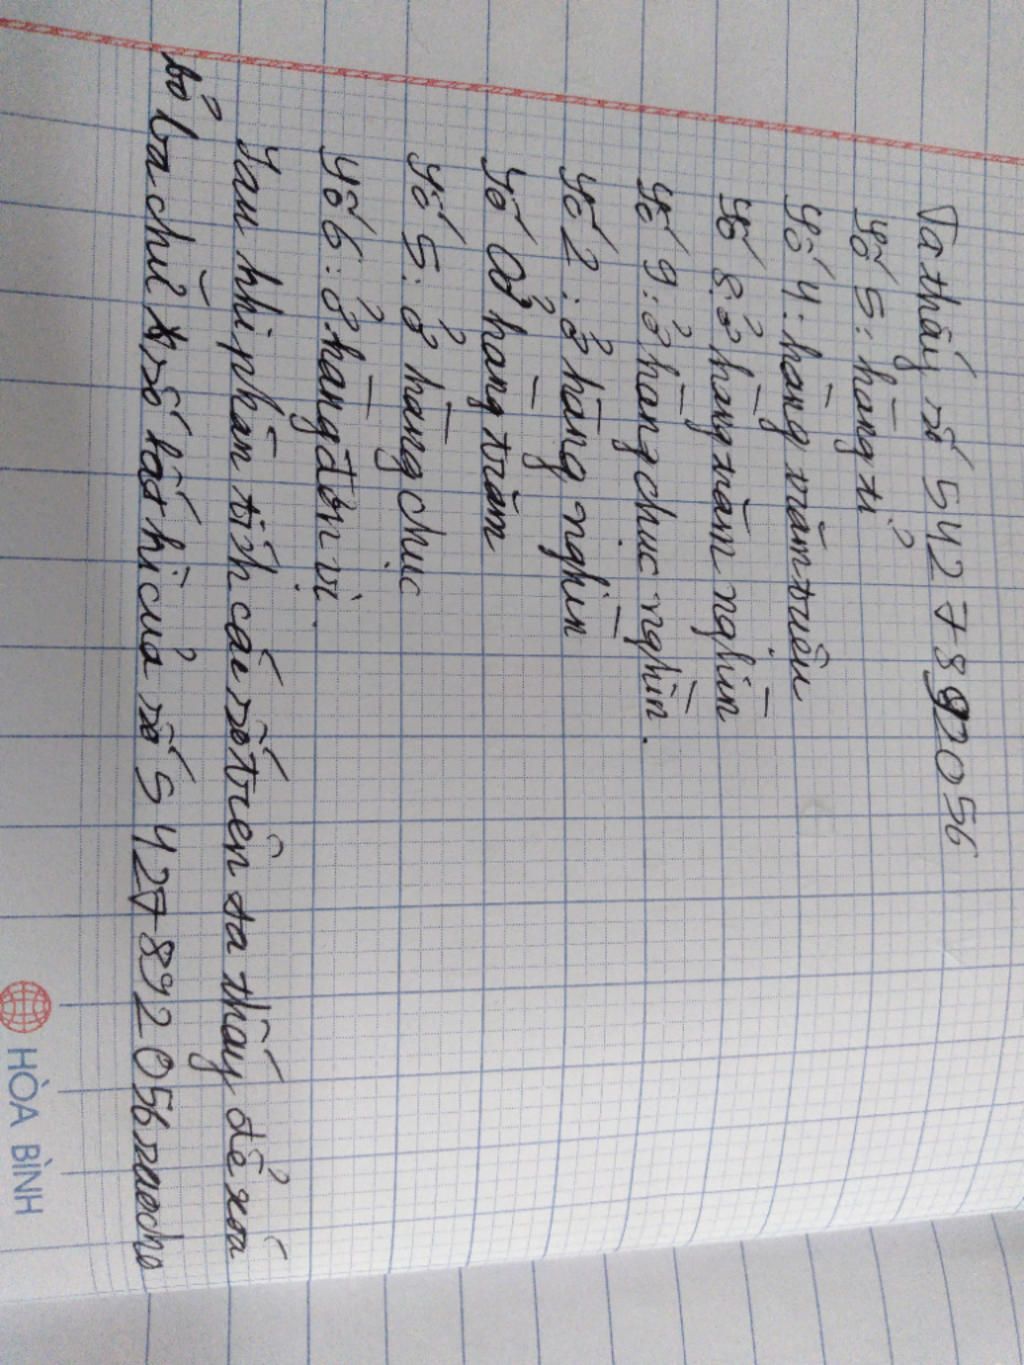 Ta thấy số 542 7892056
Số 5: hàng tỉ
Số 4: hàng trăm triệu
Số 8: ở hàng trăm nghìn
Số 9: ở hàng chục nghìn.
Số 2: ở hàng nghìn
Số 0 ở hàng trăm
Số 5: ở hàng chục
Số 6: ở hàng đơn vị.
Sau khi phân tích các số trên ta thấy để xoá
bỏ ba chữ số bất kì của số 5427892056 sao cho
HÒA BÌNH